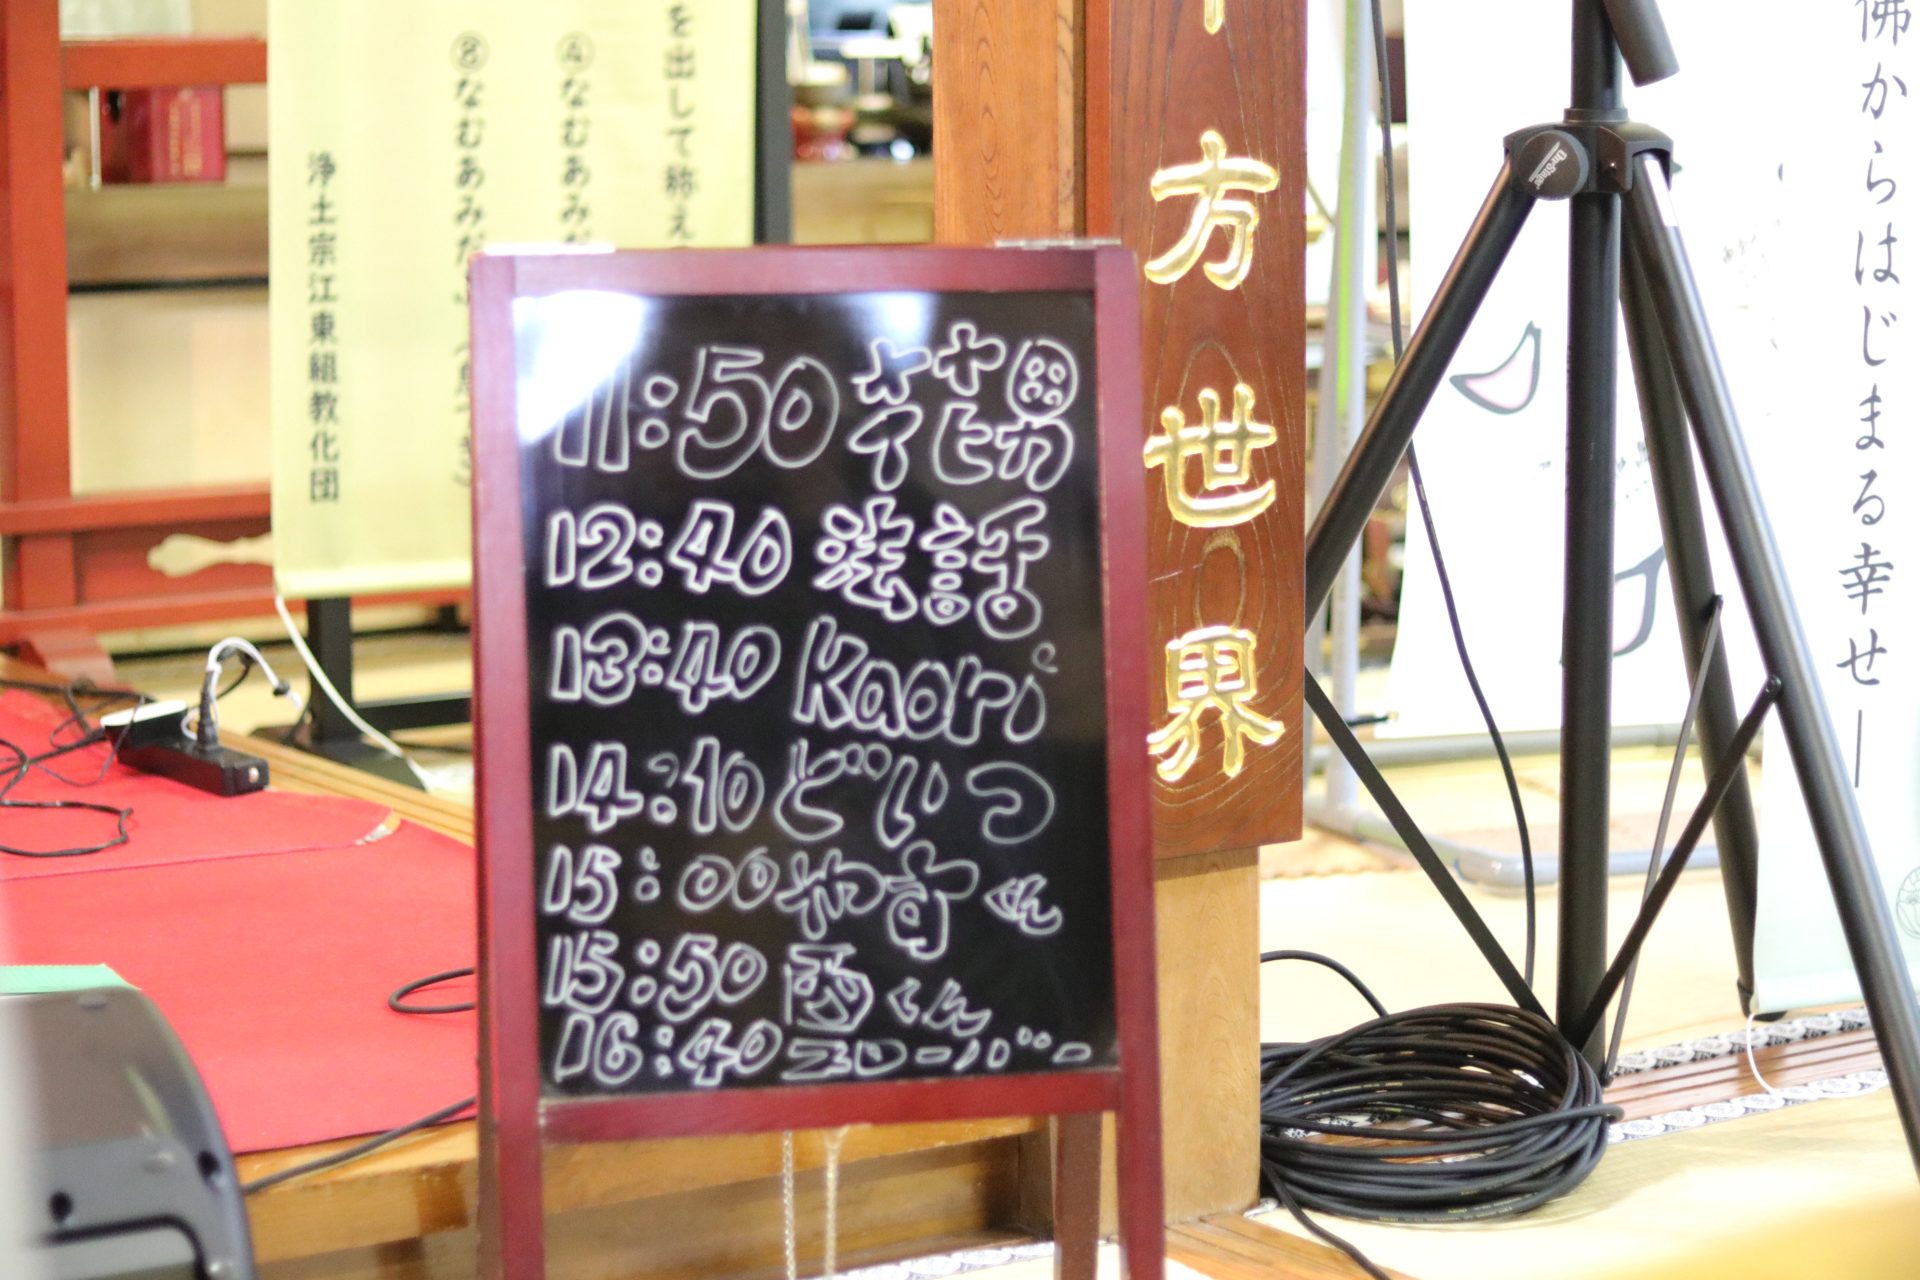 11:50
12:40 法話
13:40 Kaori
14:10 どいつ
15:00 やすくん
15:50 西くん
16:40 エローバー
方世界
を出して称え
④なむあみだ
⑧なむあみだ
浄土宗江東組教化団
佛からはじまる幸せ―
On-Stage